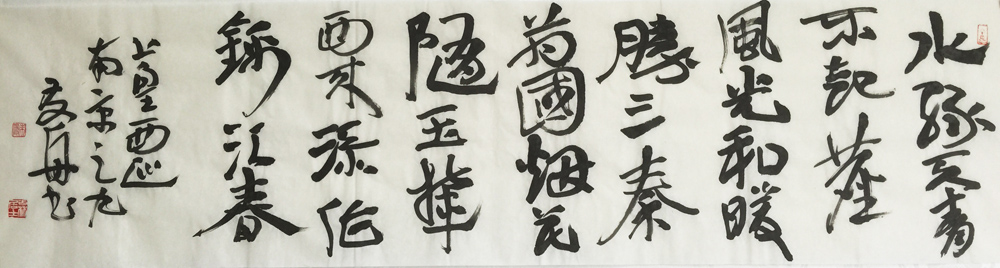 水緑天青
不起塵
風光和暖
勝三秦
萬國烟花
隨玉輦
西来添作
錦江春
上皇西巡
南京之九
书